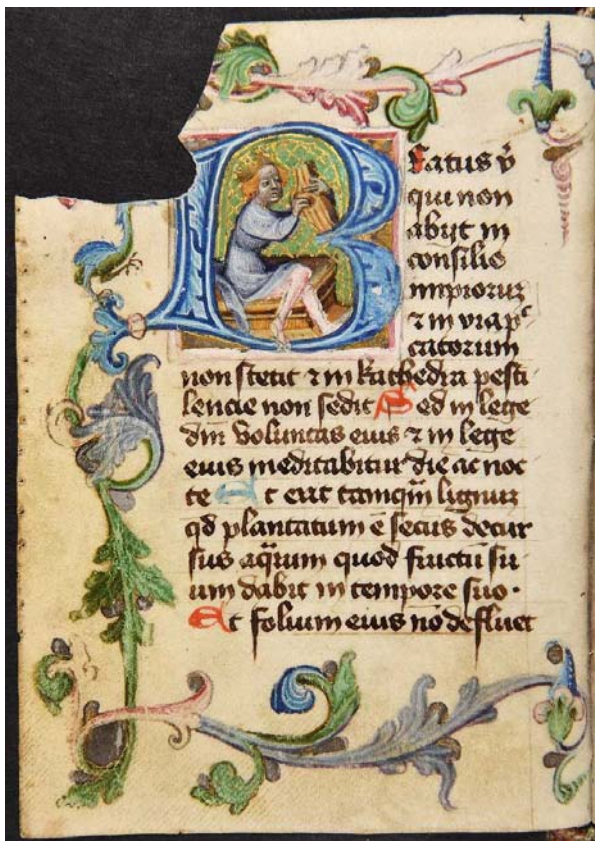 Beatus vͥ
qui non
abijt in
cōnsilio
impiorum
⁊ in via pͨ
catorum
non stetit ⁊ in kathedra pesti
lencie non sedit Sed in lege
dnī voluntas eius ⁊ in lege
eius meditabitur die ac noc
te Et erit tamqm̄ lignum
qd̄ plantatum ē secus decur
sus aq̄rum quod fructū su
um dabit in tempore suo ·
Et folium eius nō defluet